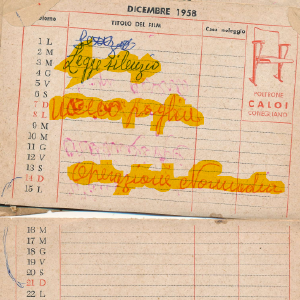 DICEMBRE 1958
Giorno TITOLO DEL FILM Casa noleggio
1 L
2 M Legge silenzio
3 M
4 G
5 V
6 S
7 D
8 L
9 M
10 M
11 G
12 V
13 S
14 D Operazione Normandia
15 L
POLTRONE
CALOI
CONEGLIANO
16 M
17 M
18 G
19 V
20 S
21 D
22 L